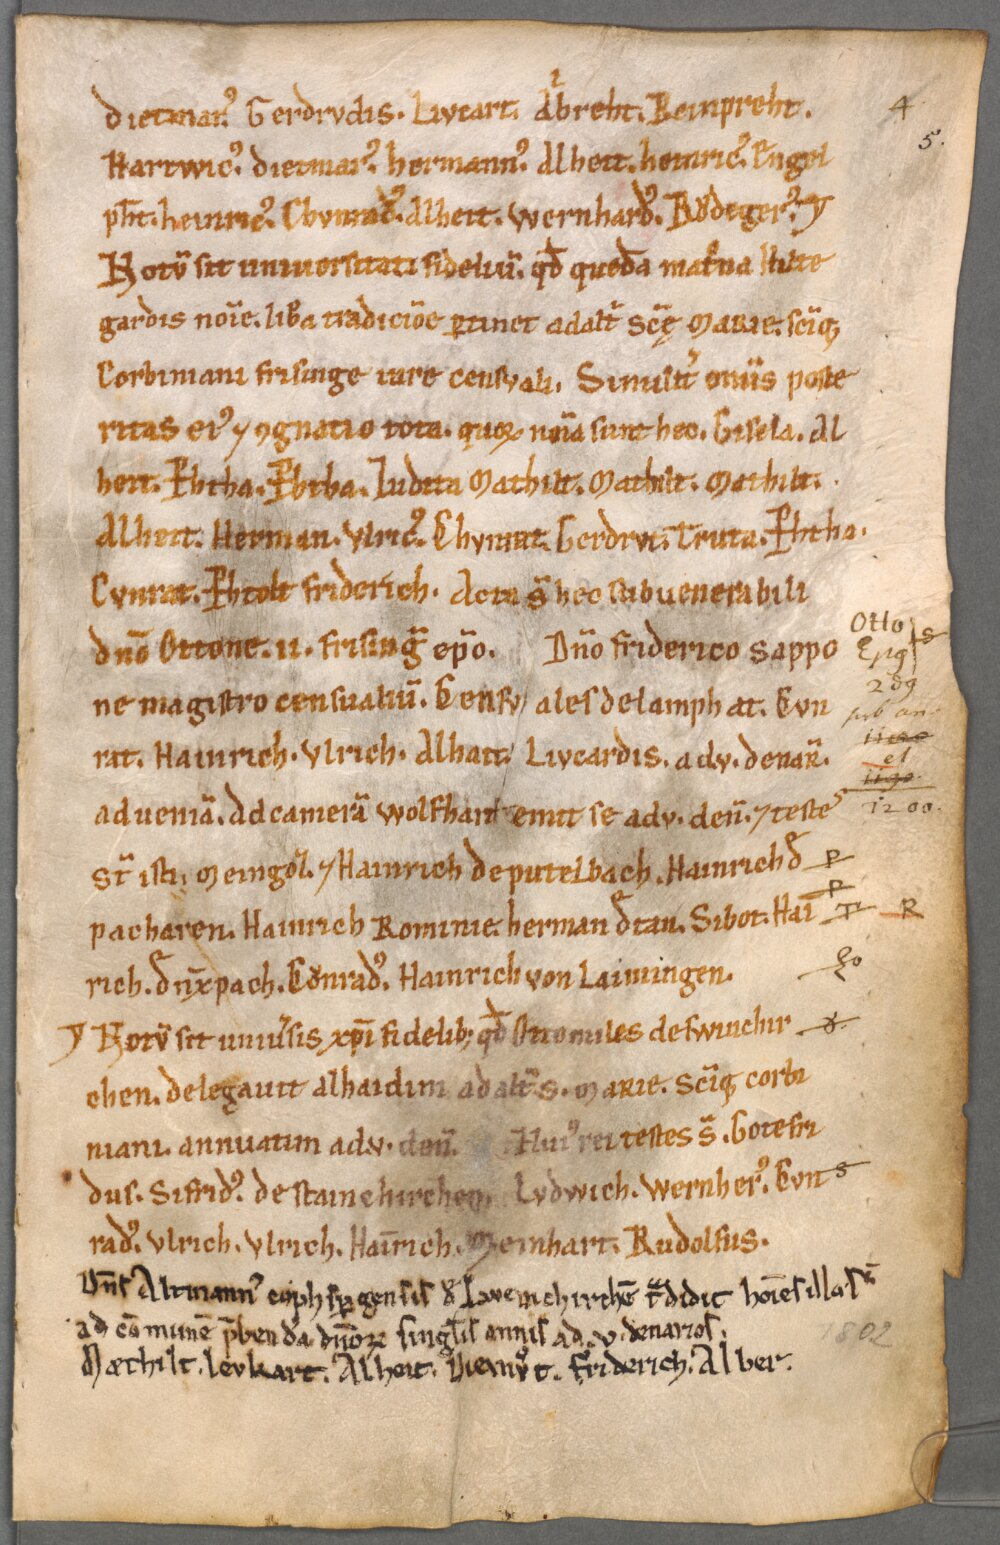 dietmarꝰ Gerdrvdis. Livcart. Albreht. Reinpreht.
4
5.
Hartwicꝰ. dietmarꝰ. hermannꝰ. Alheit. heinricꝰ. Engel
pht. heinricꝰ. Chvnradꝰ. Alheit. wernhardꝰ. Růdegerꝰ. ⁊
Notū sit uniuersitati fideliū. qd̄ queda matͣna Hilte
gardis noīe. libͣa tradiciōe ꝑtinet ad alt̄ scē MARIE. scīqꝫ
Corbiniani frisinge iure censvali. Similit̓ om̄is poste
ritas eiꝰ ⁊ ꝯgnatio tota. quoꝝ noīa sunt hec. Gisela. Al
heit. P̄htha. P̄htha. Iudita Mathilt. Mathilt. Mathilt.
Alheit. Herman. Vlricꝰ. Chvnrat. Gerdrvt. Truta. P̄htha.
Cvnrat. P̄htolt friderich. Acta s̄ hec sub uenerabili
dn̄o Ottone. II. frising̅ ep̄o. Dn̄o friderico sappo
Otto
Epg
ne magistro censualiū. Censvales de lamphat. Cvn
289
sub an
rat. Hainrich. Vlrich. Alhait. Livcardis. ad v. denar̄.
el
ad ueniā. Ad camerā wolfhart emit se ad v. den̄. ⁊ teste
1200.
st̄ isti. Meingoz. ⁊ Hainrich de putelbach. Hainrich d̓
P
P
pacharen. Hainrich Rominie. herman d̓ tan. Sibot. Hai
T R
rich. d̓ nv̄pach. Cůnradꝰ. Hainrich von Laimingen.
⁊ Notū sit uniu̓sis xp̄i fidelibꝫ qd̄ Otto miles de swinchir
chen. delegauit alhaidim ad alt̄ s. MARIE. Scīqꝫ corbi
niani. annuatim ad v. den̄. Huiꝰ rei testes s̄. Gotefri
dus. Sifridꝰ. de stainchirchen. Lvdwich. wernherꝰ. Cvn
s
radꝰ. Vlrich. Vlrich. Hainrich. Meinhart. Rudolfus.
Dn̄s Altmannꝰ de Iuenchirchē t̄didit hoīes illos
ad cōmunē p̄benda dn̄oꝝ singl̄is annis ad. v. denarios.
1802
Mæthilt. levkart. Alheit. Diemůt. friderich. Alber.